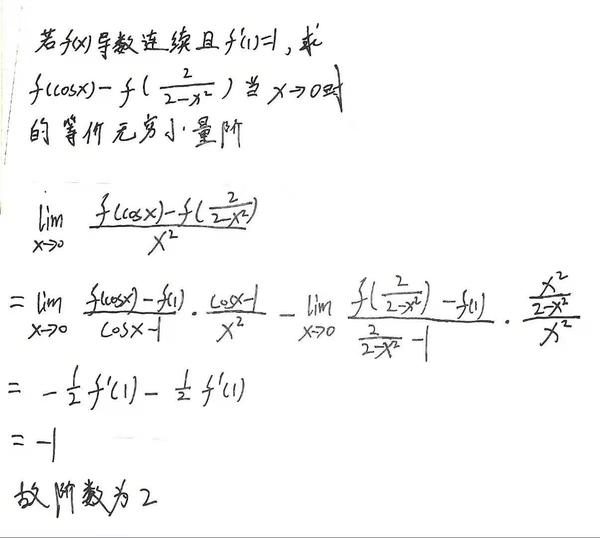 若f(x)导数连续且f'(1)=1,求
f(cosx)-f(\frac{2}{2-x^2})当x→0时
的等价无穷小量阶
\lim_{x→0} \frac{f(cosx)-f(\frac{2}{2-x^2})}{x^2}
=\lim_{x→0} \frac{f(cosx)-f(1)}{cosx-1}·\frac{cosx-1}{x^2}-\lim_{x→0} \frac{f(\frac{2}{2-x^2})-f(1)}{\frac{2}{2-x^2}-1}·\frac{\frac{x^2}{2-x^2}}{x^2}
=-\frac{1}{2}f'(1)-\frac{1}{2}f'(1)
=-1
故阶数为2